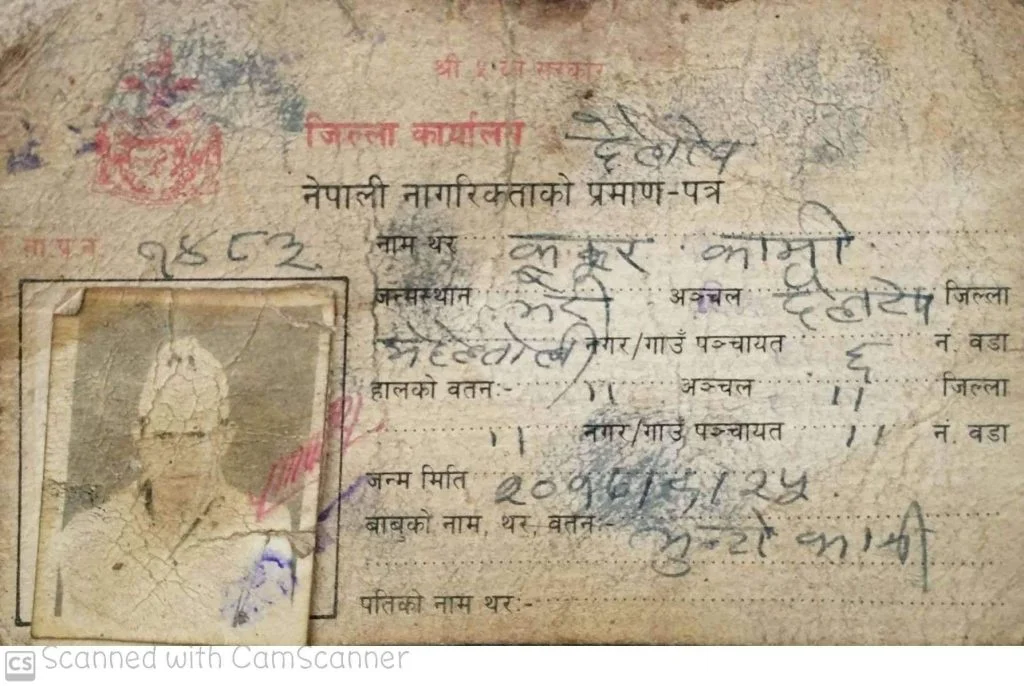 श्री ५ को सरकार
जिल्ला कार्यालय दैलेख
नेपाली नागरिकताको प्रमाण-पत्र
ना.प.न. १४८३
नाम थर कामी
जन्मस्थान भेरी अञ्चल दैलेख जिल्ला
नगर/गाउँ पञ्चायत ६ न. वडा
हालको वतन:- ,, अञ्चल ,, जिल्ला
,, नगर/गाउँ पञ्चायत ,, न. वडा
जन्म मिति
बाबुको नाम, थर, वतन:- कामी
पतिको नाम थर:-
CS Scanned with CamScanner